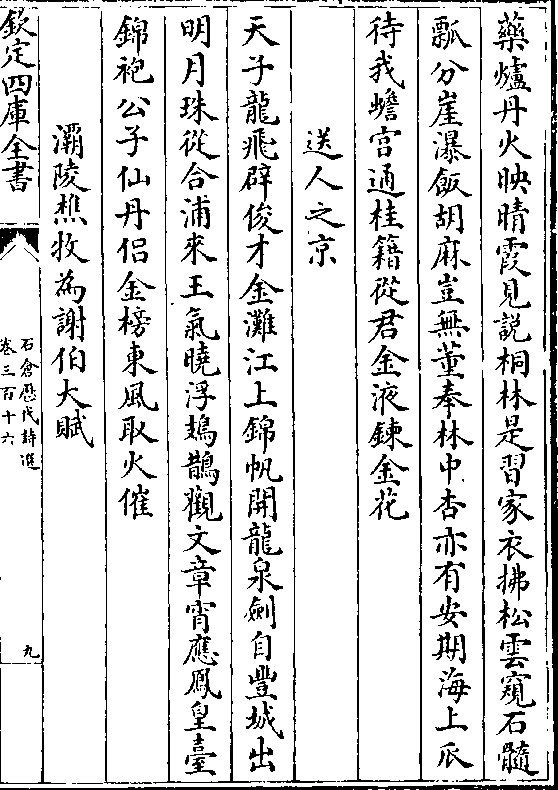 藥爐丹火映晴霞見説桐林是習家衣拂松雲窺石髓
瓢分崖瀑飯胡麻豈無董奉林中杏亦有安期海上瓜
待我蟾宫通桂籍從君金液鍊金花
送人之京
天子龍飛辟俊才金灘江上錦帆開龍泉劍自豐城出
明月珠從合浦來王氣曉浮鳷鵲觀文章宵應鳳皇臺
錦袍公子仙丹侣金榜東風取火催
灞陵樵牧為謝伯大賦
欽定四庫全書
石倉歷代詩選
卷三百十六
九